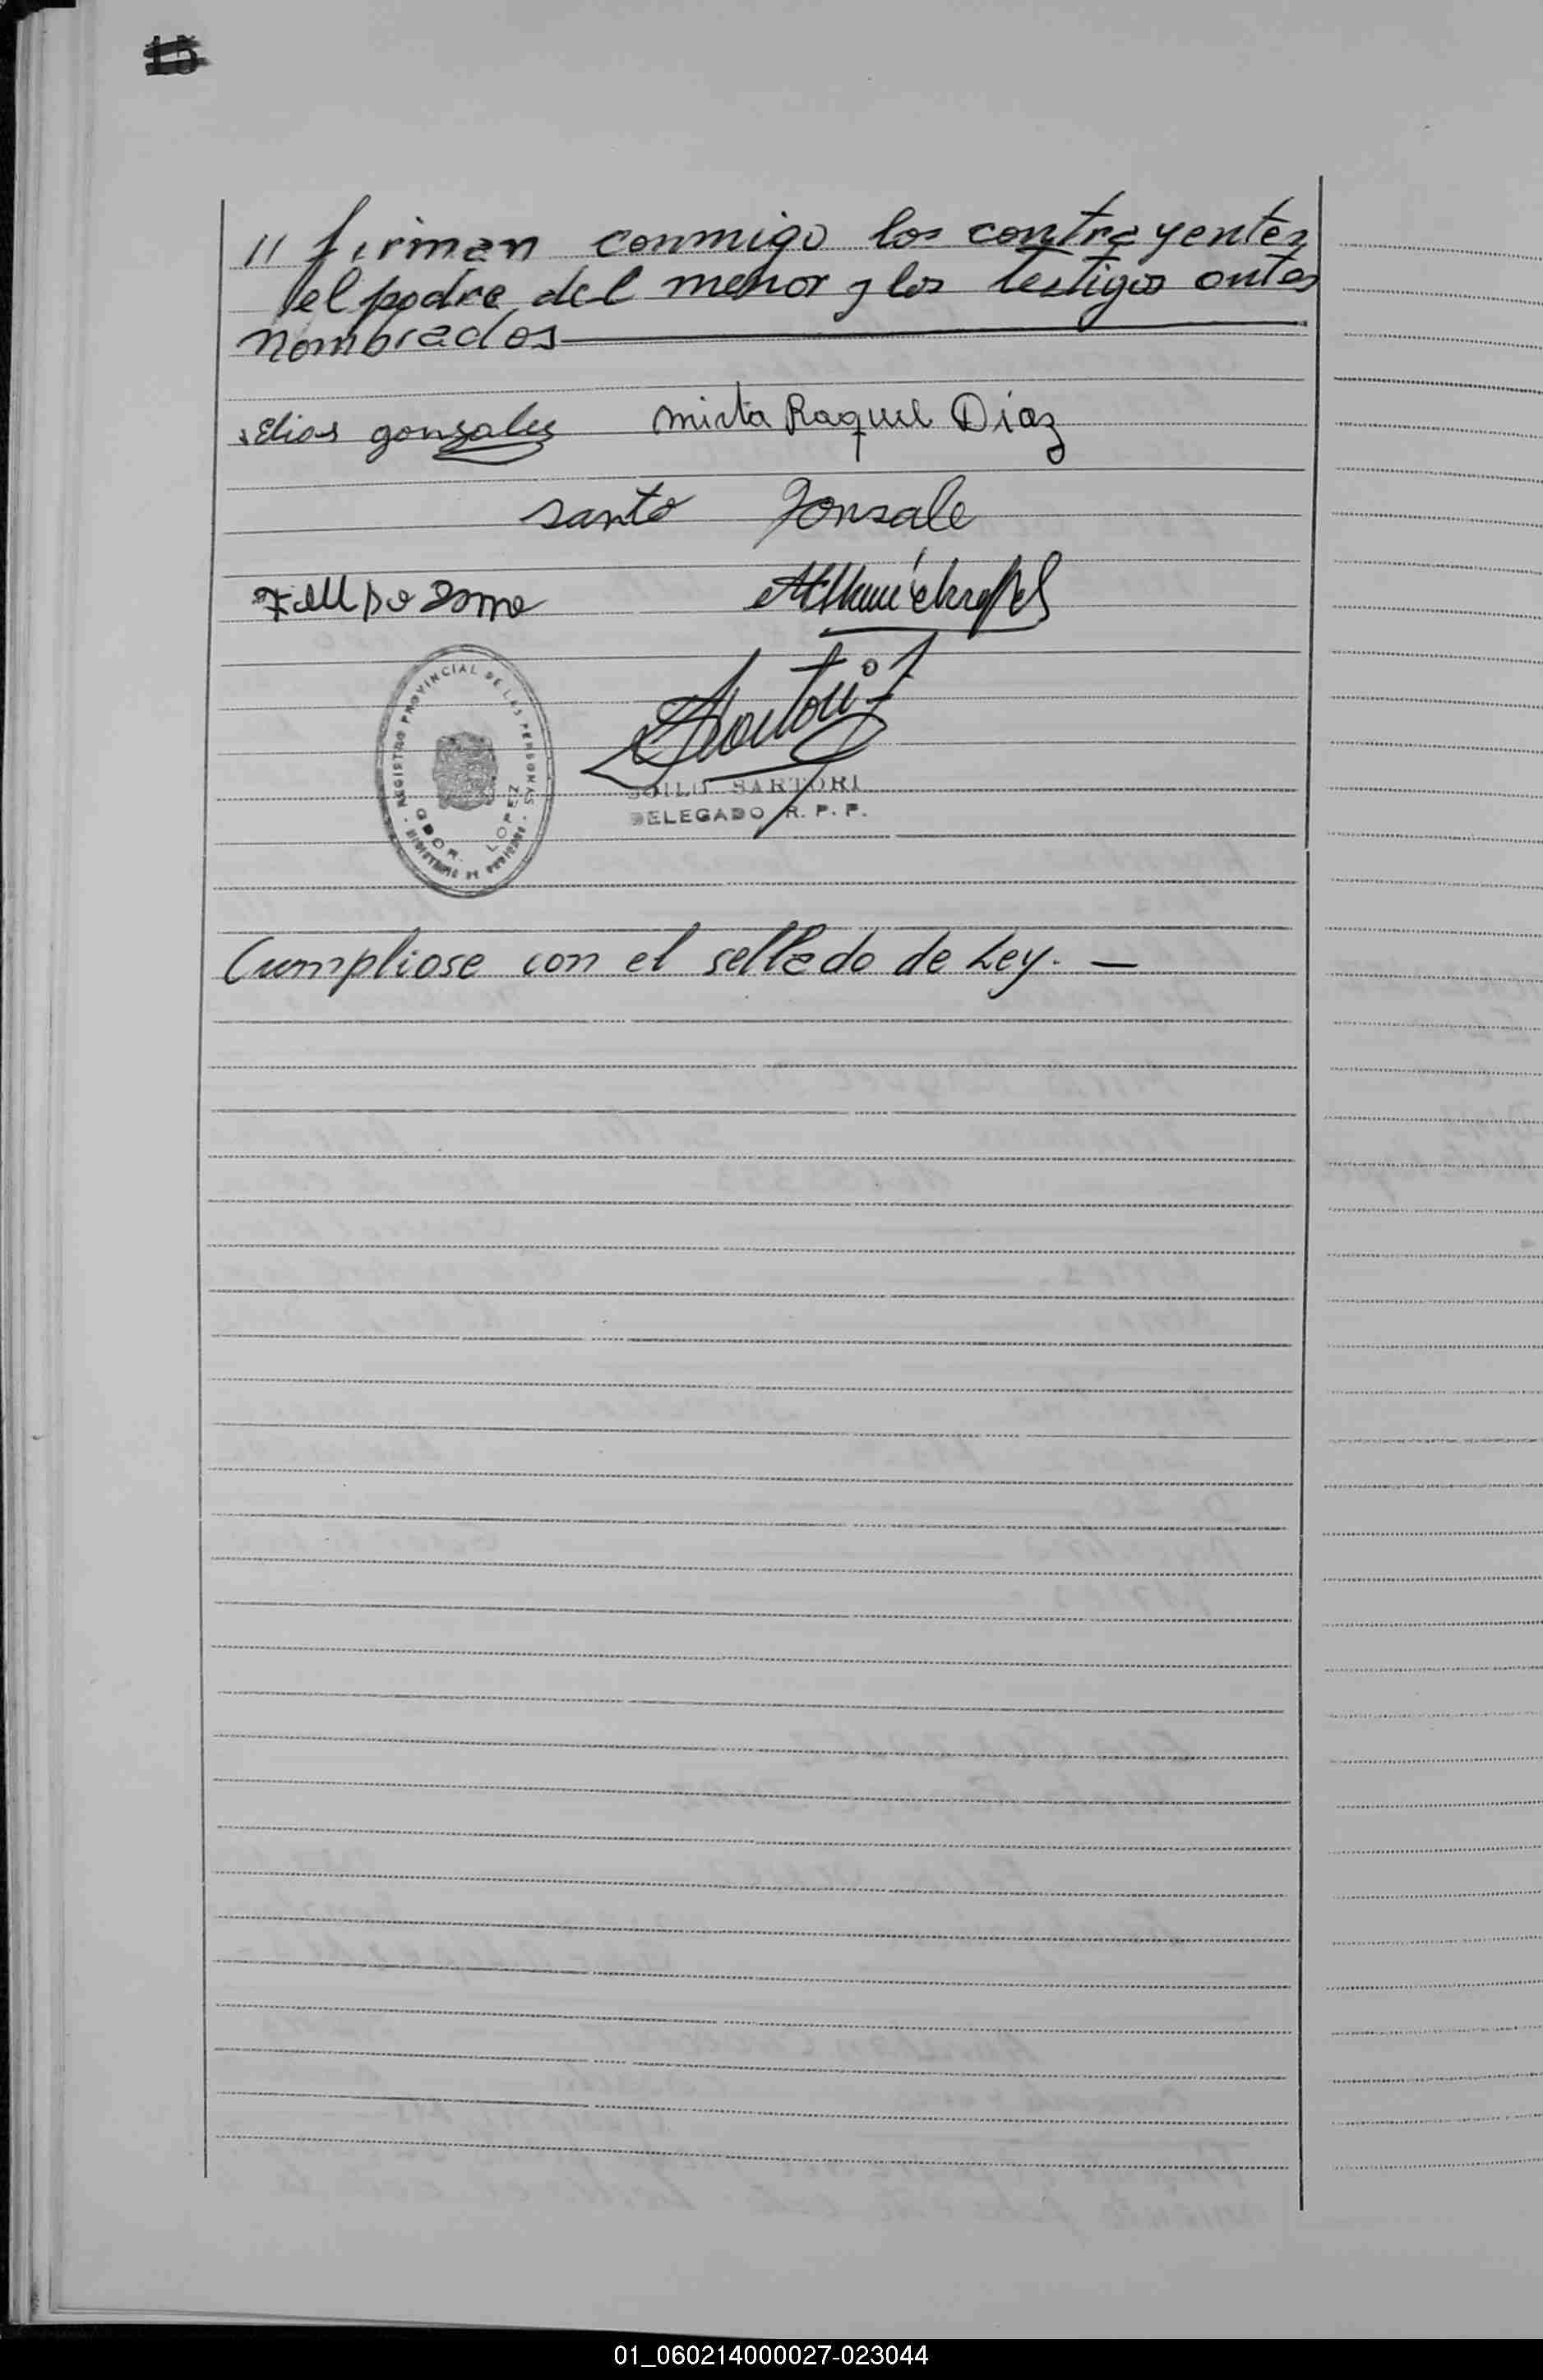 15
// firman conmigo los contrayentes
el padre del menor y los testigos antes
nombrados
Elias gonzales mirta Raquel Diaz
santo Gonsale
REGISTRO PROVINCIAL DE LAS PERSONAS
GDOR. LOPEZ
ZOILO SARTORI
DELEGADO R. P. P.
Cumpliose con el sellado de Ley. —
01_060214000027-023044